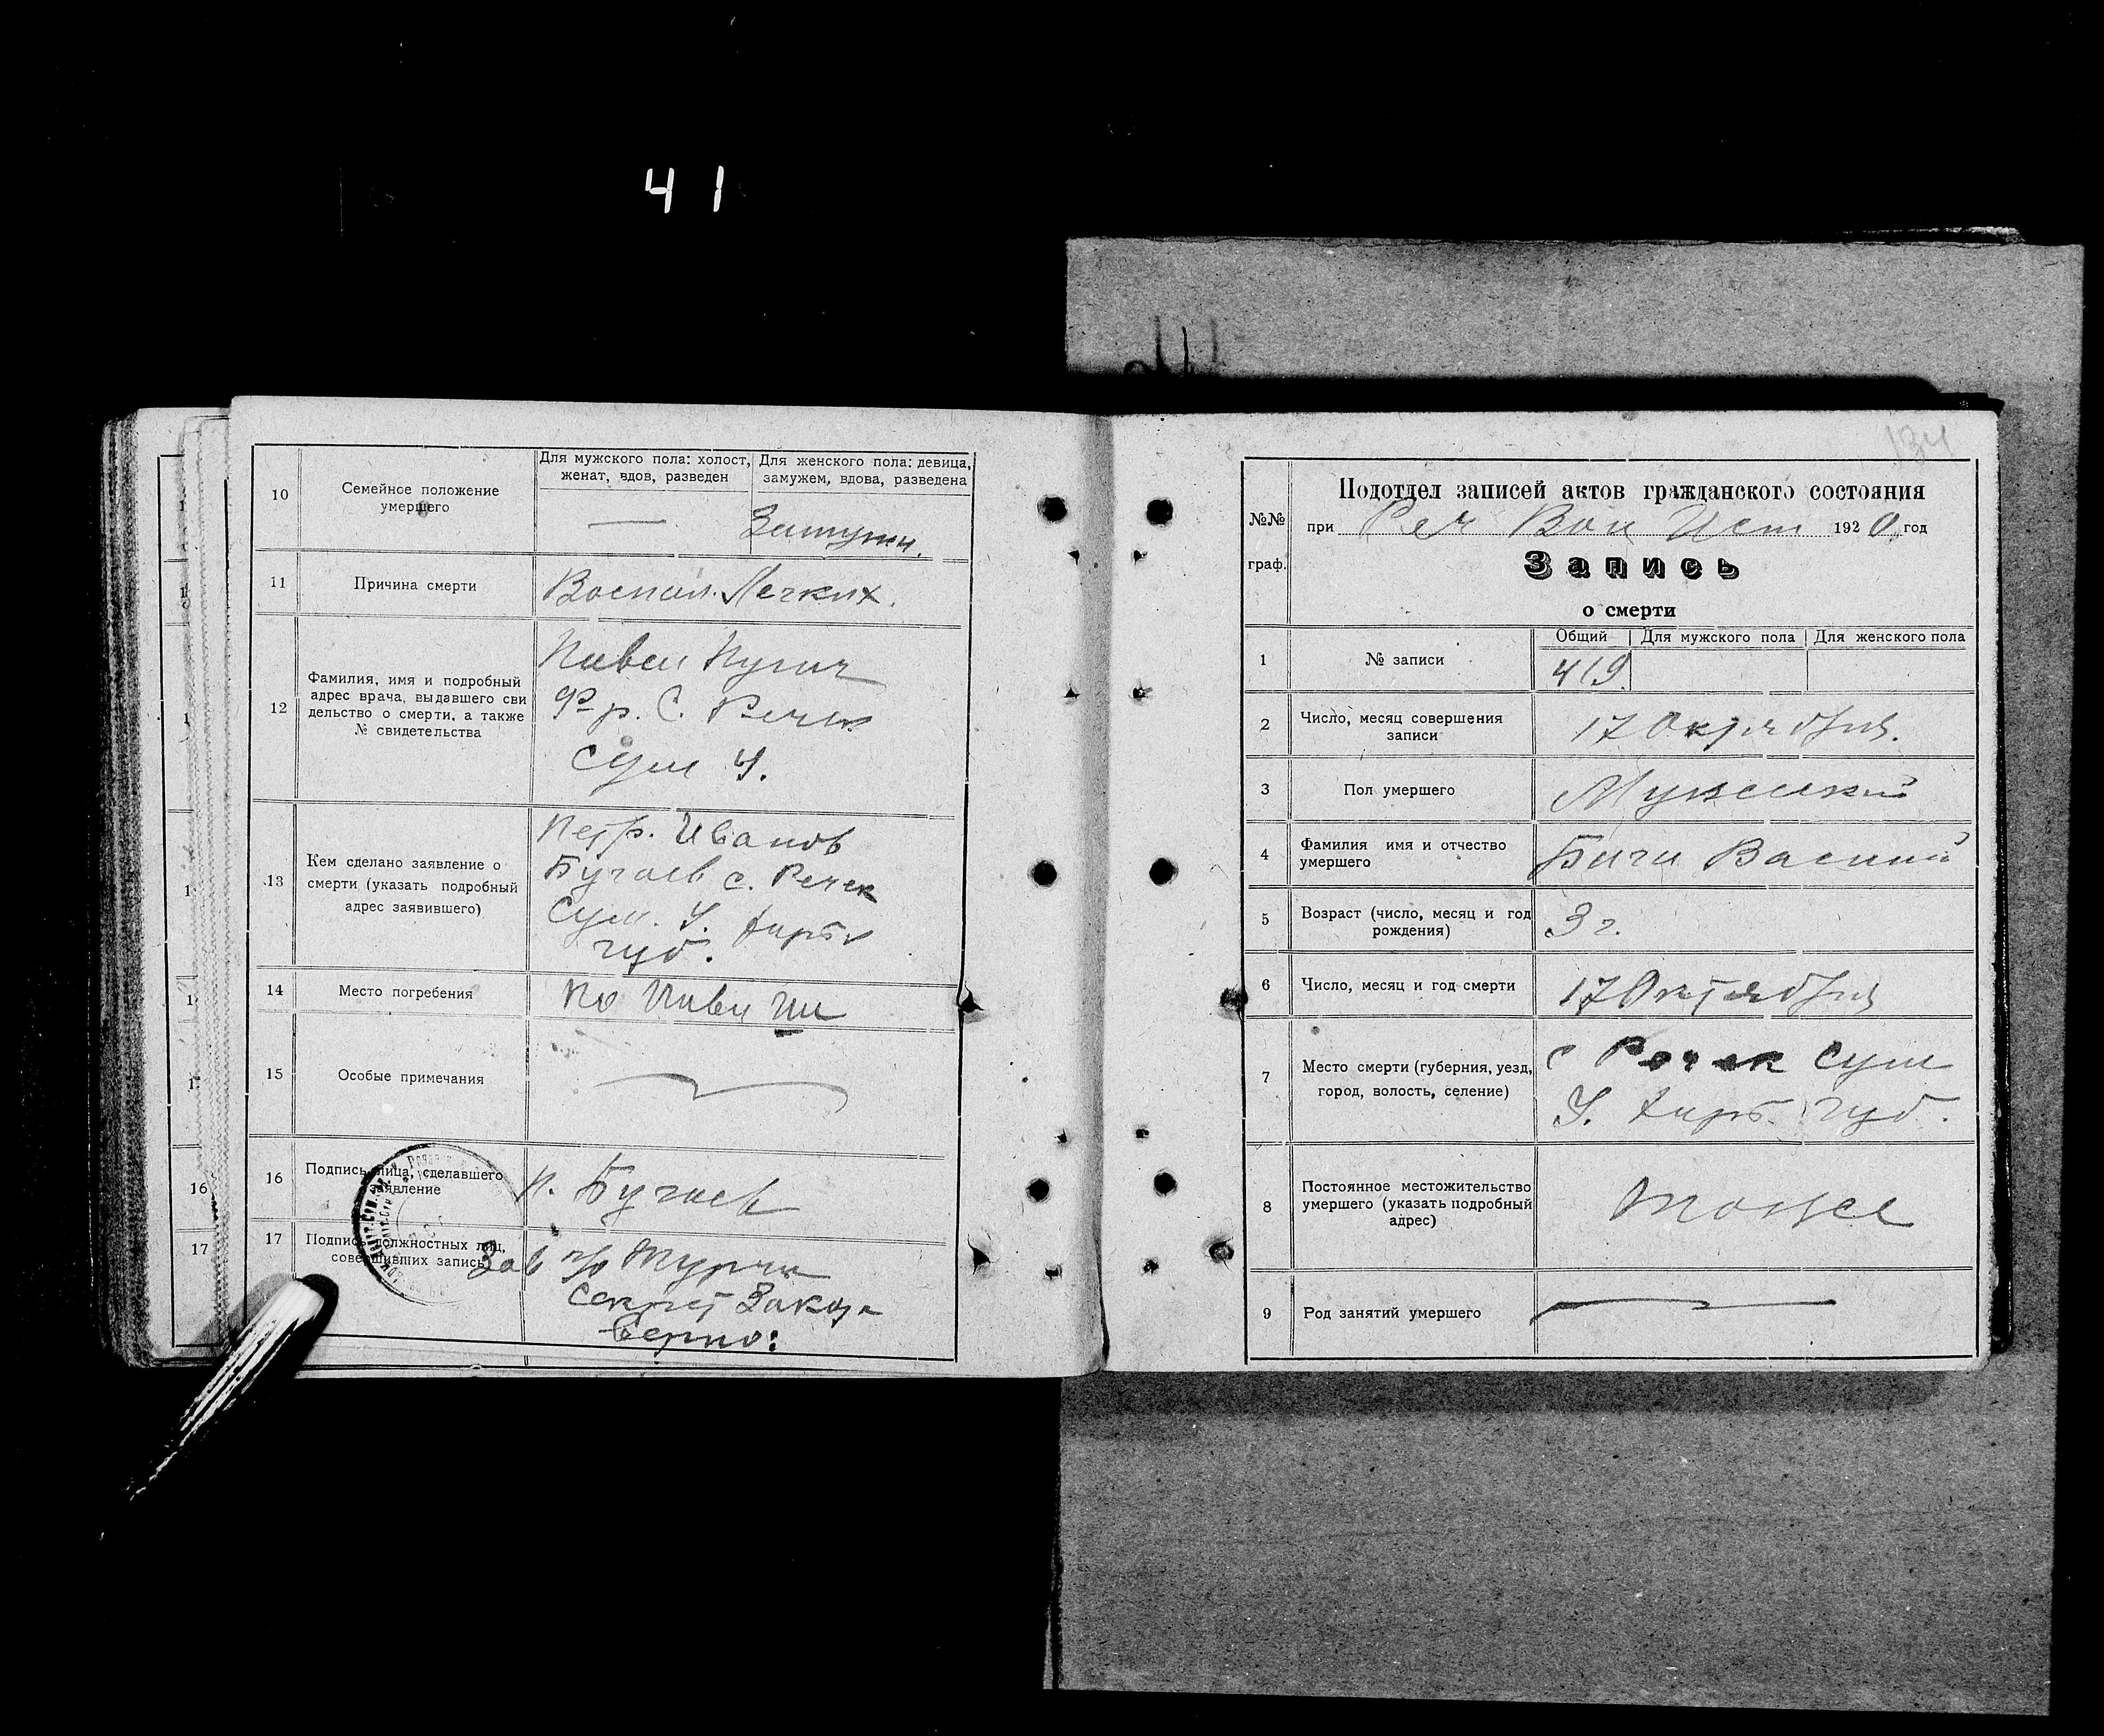 41
10
Семейное положение
умершего
Для мужского пола: холост,
женат, вдов, разведен
Для женского пола: девица,
замужем, вдова, разведена
—
Замужн.
11
Причина смерти
Воспал. Легких.
12
Фамилия, имя и подробный
адрес врача, выдавшего сви
дельство о смерти, а также
№ свидетельства
р. С. Речек
Сум У.
13
Кем сделано заявление о
смерти (указать подробный
адрес заявившего)
Петр. Иванов
Бугаев с. Речек
Сум. У. Харьк
губ.
14
Место погребения
15
Особые примечания
16
Подпись лица, сделавшего
заявление
П. Бугаев
17
Подпись должностных лиц,
совершивших запись
Зав п/о
Секрет
Верно:
16
17
134
№№
граф.
Подотдел записей актов гражданского состояния
при Реч Вол Исп 1920 год
Запись
о смерти
1
№ записи
Общий
Для мужского пола
Для женского пола
419.
2
Число, месяц совершения
записи
17 Октября.
3
Пол умершего
Мужский
4
Фамилия имя и отчество
умершего
Василий
5
Возраст (число, месяц и год
рождения)
3 г.
6
Число, месяц и год смерти
17 Октября
7
Место смерти (губерния, уезд,
город, волость, селение)
с Речек Сум
У. Харьк. губ.
8
Постоянное местожительство
умершего (указать подробный
адрес)
тоже
9
Род занятий умершего